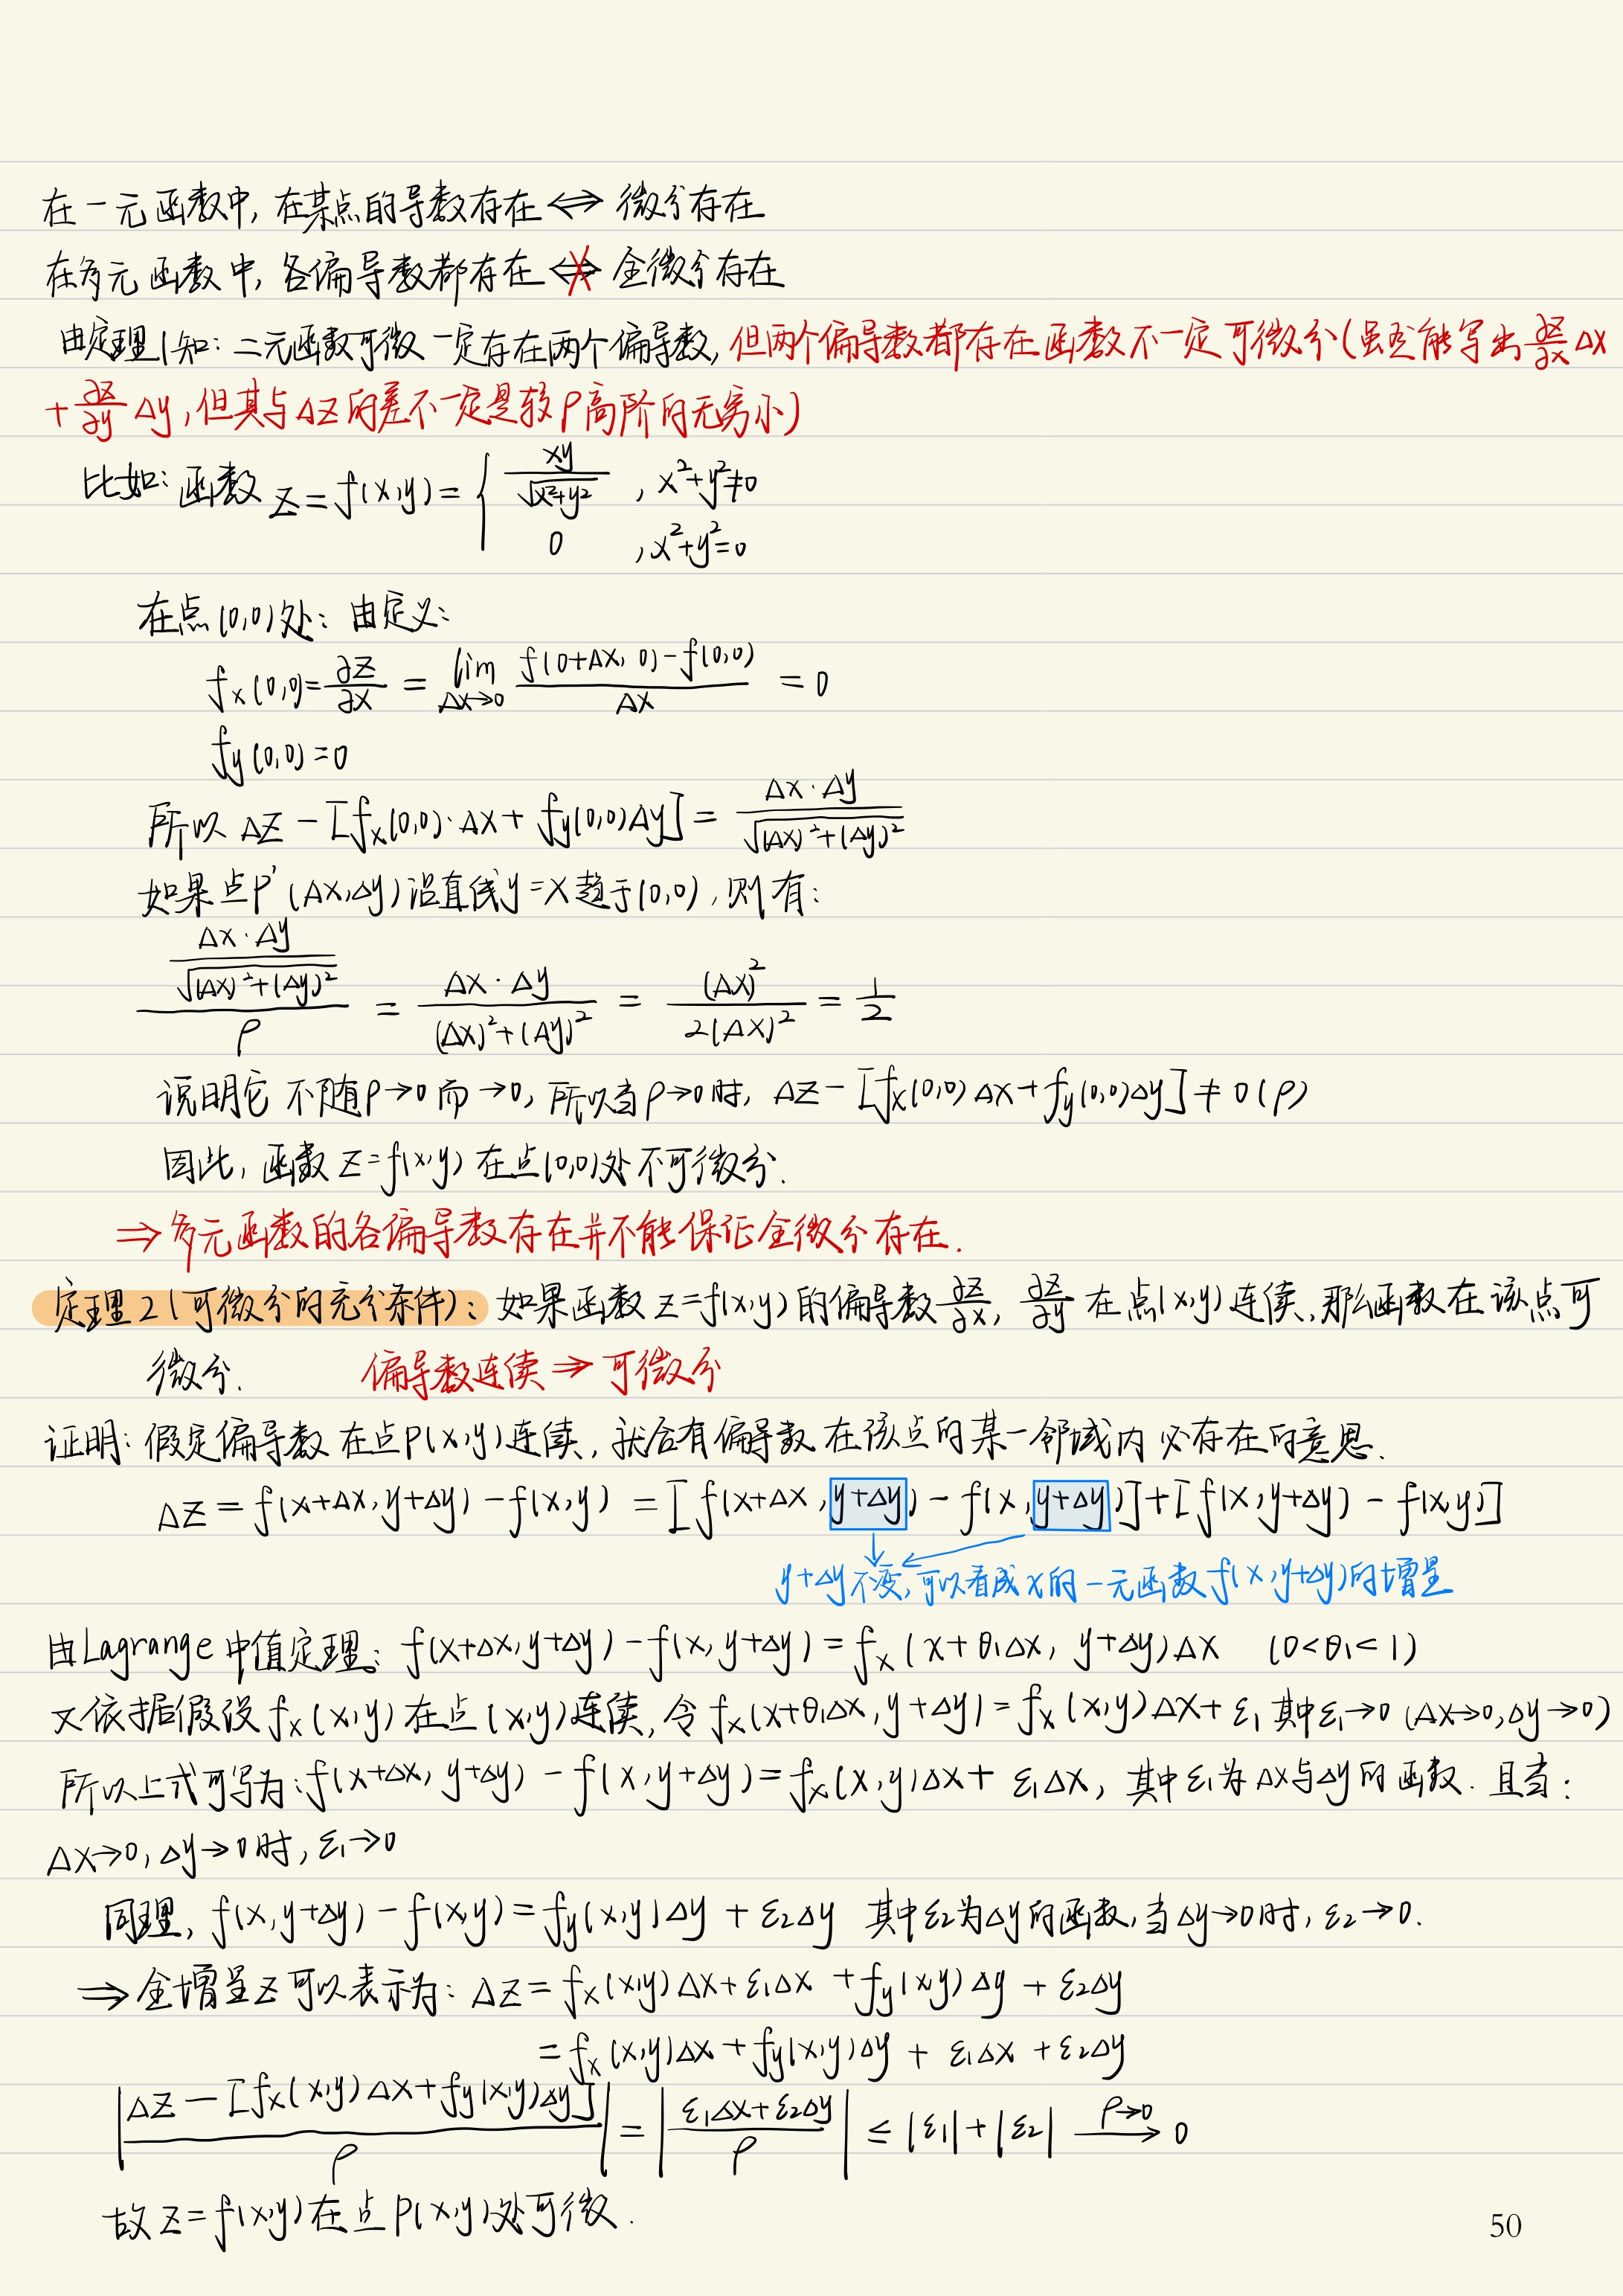 在一元函数中, 在某点的导数存在 ⇔ 微分存在
在多元函数中, 各偏导数都存在 ⇎ 全微分存在
由定理1知: 二元函数可微一定存在两个偏导数, 但两个偏导数都存在函数不一定可微分(虽然能写出 ∂z/∂x Δx
+ ∂z/∂y Δy, 但其与Δz的差不一定是较ρ高阶的无穷小)
比如: 函数 z = f(x,y) = { xy/√(x²+y²) , x²+y²≠0
0 , x²+y²=0
在点(0,0)处: 由定义:
fx(0,0) = ∂z/∂x = lim Δx→0 [f(0+Δx, 0) - f(0,0)]/Δx = 0
fy(0,0) = 0
所以 Δz - [fx(0,0)·Δx + fy(0,0)Δy] = Δx·Δy/√((Δx)²+(Δy)²)
如果点P'(Δx,Δy)沿直线y=x趋于(0,0), 则有:
[Δx·Δy/√((Δx)²+(Δy)²)]/ρ = Δx·Δy/((Δx)²+(Δy)²) = (Δx)²/2(Δx)² = 1/2
说明它不随ρ→0而→0, 所以当ρ→0时, Δz - [fx(0,0)Δx + fy(0,0)Δy] ≠ o(ρ)
因此, 函数z=f(x,y)在点(0,0)处不可微分.
⇒ 多元函数的各偏导数存在并不能保证全微分存在.
定理2(可微分的充分条件): 如果函数z=f(x,y)的偏导数 ∂z/∂x, ∂z/∂y 在点(x,y)连续, 那么函数在该点可
微分. 偏导数连续 ⇒ 可微分
证明: 假定偏导数在点P(x,y)连续, 就含有偏导数在该点的某一邻域内必存在的意思.
Δz = f(x+Δx, y+Δy) - f(x,y) = [f(x+Δx, y+Δy) - f(x, y+Δy)] + [f(x, y+Δy) - f(x,y)]
y+Δy不变, 可以看成x的一元函数f(x, y+Δy)的增量
由Lagrange中值定理: f(x+Δx, y+Δy) - f(x, y+Δy) = fx(x+θ₁Δx, y+Δy)Δx (0<θ₁<1)
又依据假设fx(x,y)在点(x,y)连续, 令fx(x+θ₁Δx, y+Δy) = fx(x,y)Δx + ε₁ 其中ε₁→0 (Δx→0, Δy→0)
所以上式可写为: f(x+Δx, y+Δy) - f(x, y+Δy) = fx(x,y)Δx + ε₁Δx, 其中ε₁为Δx与Δy的函数. 且当:
Δx→0, Δy→0时, ε₁→0
同理, f(x, y+Δy) - f(x,y) = fy(x,y)Δy + ε₂Δy 其中ε₂为Δy的函数, 当Δy→0时, ε₂→0.
⇒ 全增量z可以表示为: Δz = fx(x,y)Δx + ε₁Δx + fy(x,y)Δy + ε₂Δy
= fx(x,y)Δx + fy(x,y)Δy + ε₁Δx + ε₂Δy
|(Δz - [fx(x,y)Δx + fy(x,y)Δy])/ρ| = |(ε₁Δx + ε₂Δy)/ρ| ≤ |ε₁| + |ε₂| ρ→0→ 0
故z=f(x,y)在点P(x,y)处可微.
50